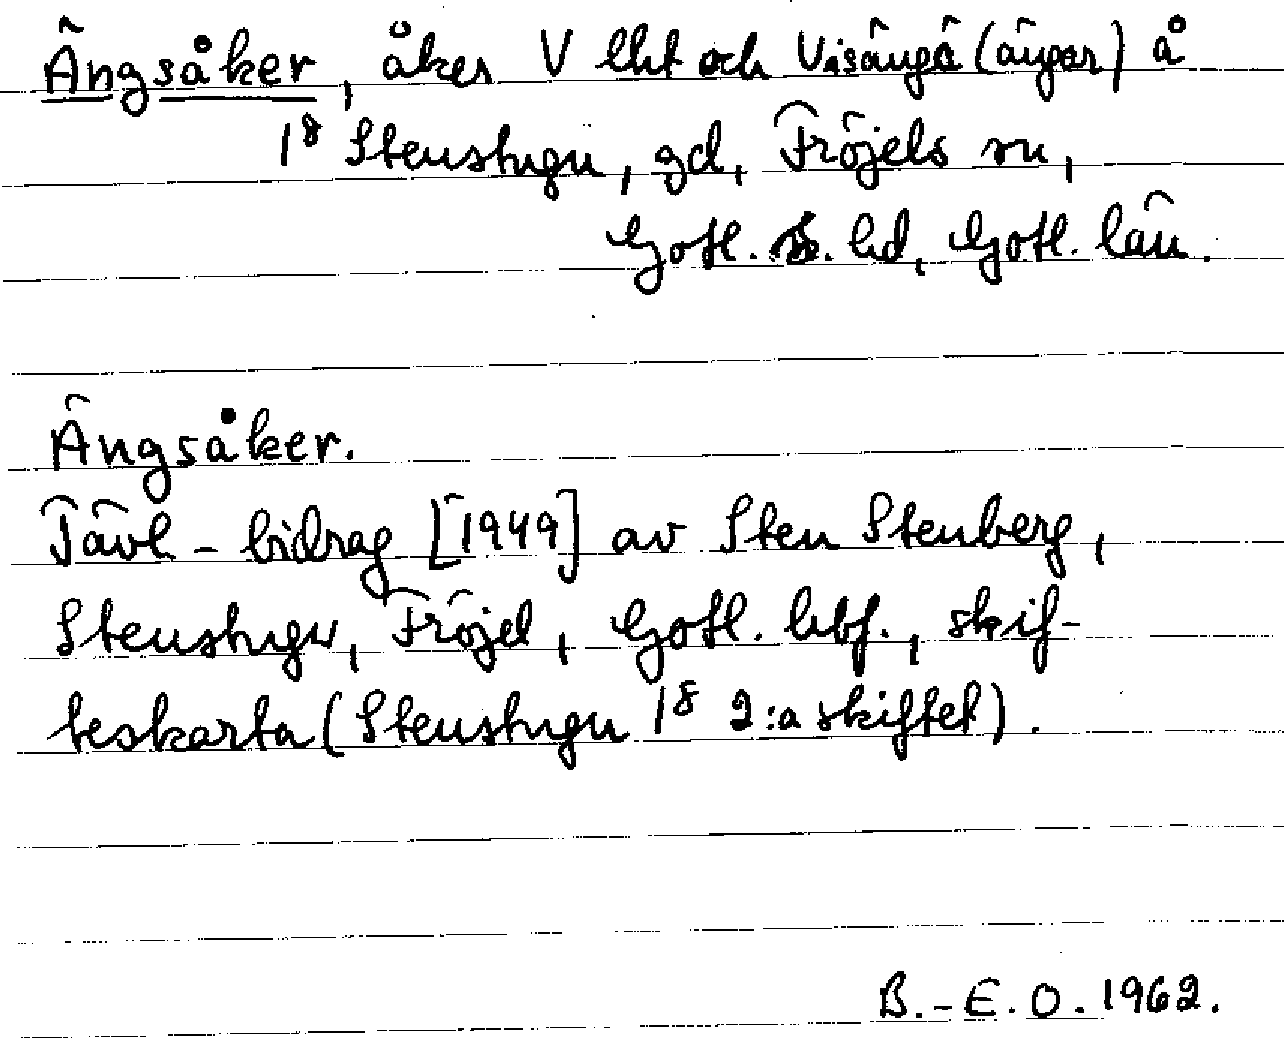 Ängsåker, åker V Lht och Visängä (ängar) å
1⁸ Stenstugu, gd, Fröjels sn,
Gotl. S. hd, Gotl. län.
Ängsåker.
Tävl-bidrag [1949] av Sten Stenberg,
Stenstugu, Fröjel, Gotl. hbf., skif-
teskarta (Stenstugu 1⁸ 2:a skiftet).
B.-E.O. 1962.